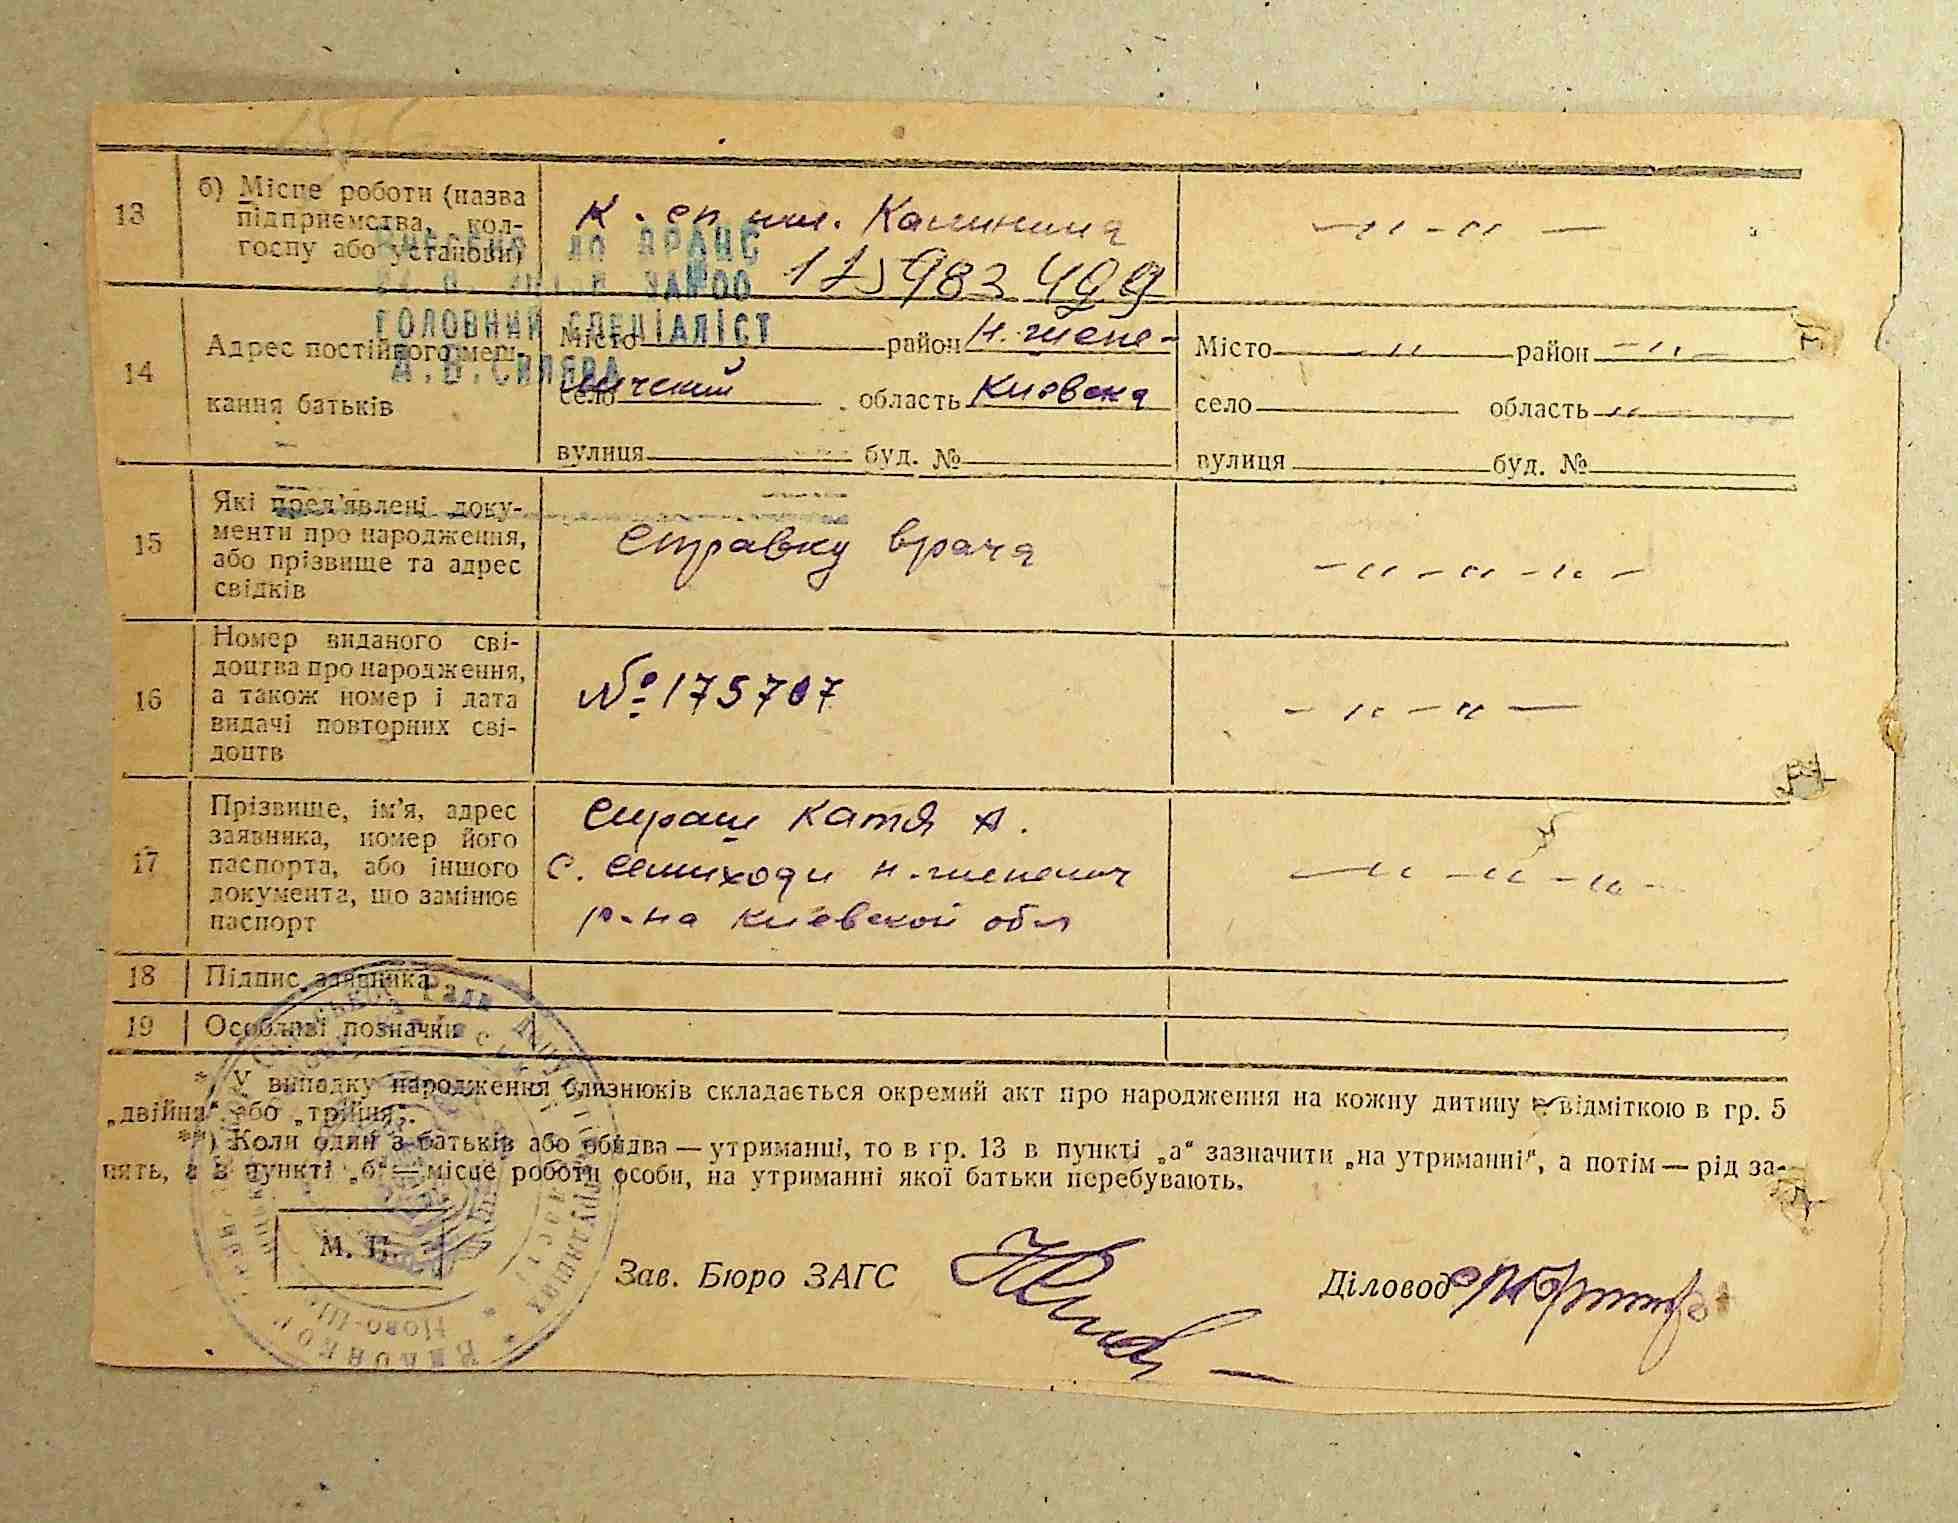 13 б) Місце роботи (назва
підприємства, кол-
госпу або установи)
К. сп им. Калинина
— " - " —
ДО ДРАЦС
ЗА №00
175983499
ГОЛОВНИЙ СПЕЦІАЛІСТ
14 Адрес постійного меш-
кання батьків
Місто район Н. Шепе-
личский
село область Киевска
вулиця буд. №
Місто " район - " -
село область "
вулиця буд. №
15 Які пред'явлені доку-
менти про народження,
або прізвище та адрес
свідків
Справку врача
- " - " - " -
16 Номер виданого сві-
доцтва про народження,
а також номер і дата
видачі повторних сві-
доцтв
№ 175707
- " - " —
17 Прізвище, ім'я, адрес
заявника, номер його
паспорта, або іншого
документа, що замінює
паспорт
Катя А.
с. Семиходи Н-шепелич
р-на Киевской обл
— " - " - " -
18 Підпис заявника
19 Особливі позначки
*) У випадку народження близнюків складається окремий акт про народження на кожну дитину з відміткою в гр. 5
„двійня" або „трійня".
**) Коли один з батьків або обидва — утриманці, то в гр. 13 в пункті „а" зазначити „на утриманні", а потім — рід за-
нять, а в пункті „б" — місце роботи особи, на утриманні якої батьки перебувають.
М. П.
Зав. Бюро ЗАГС
Діловод